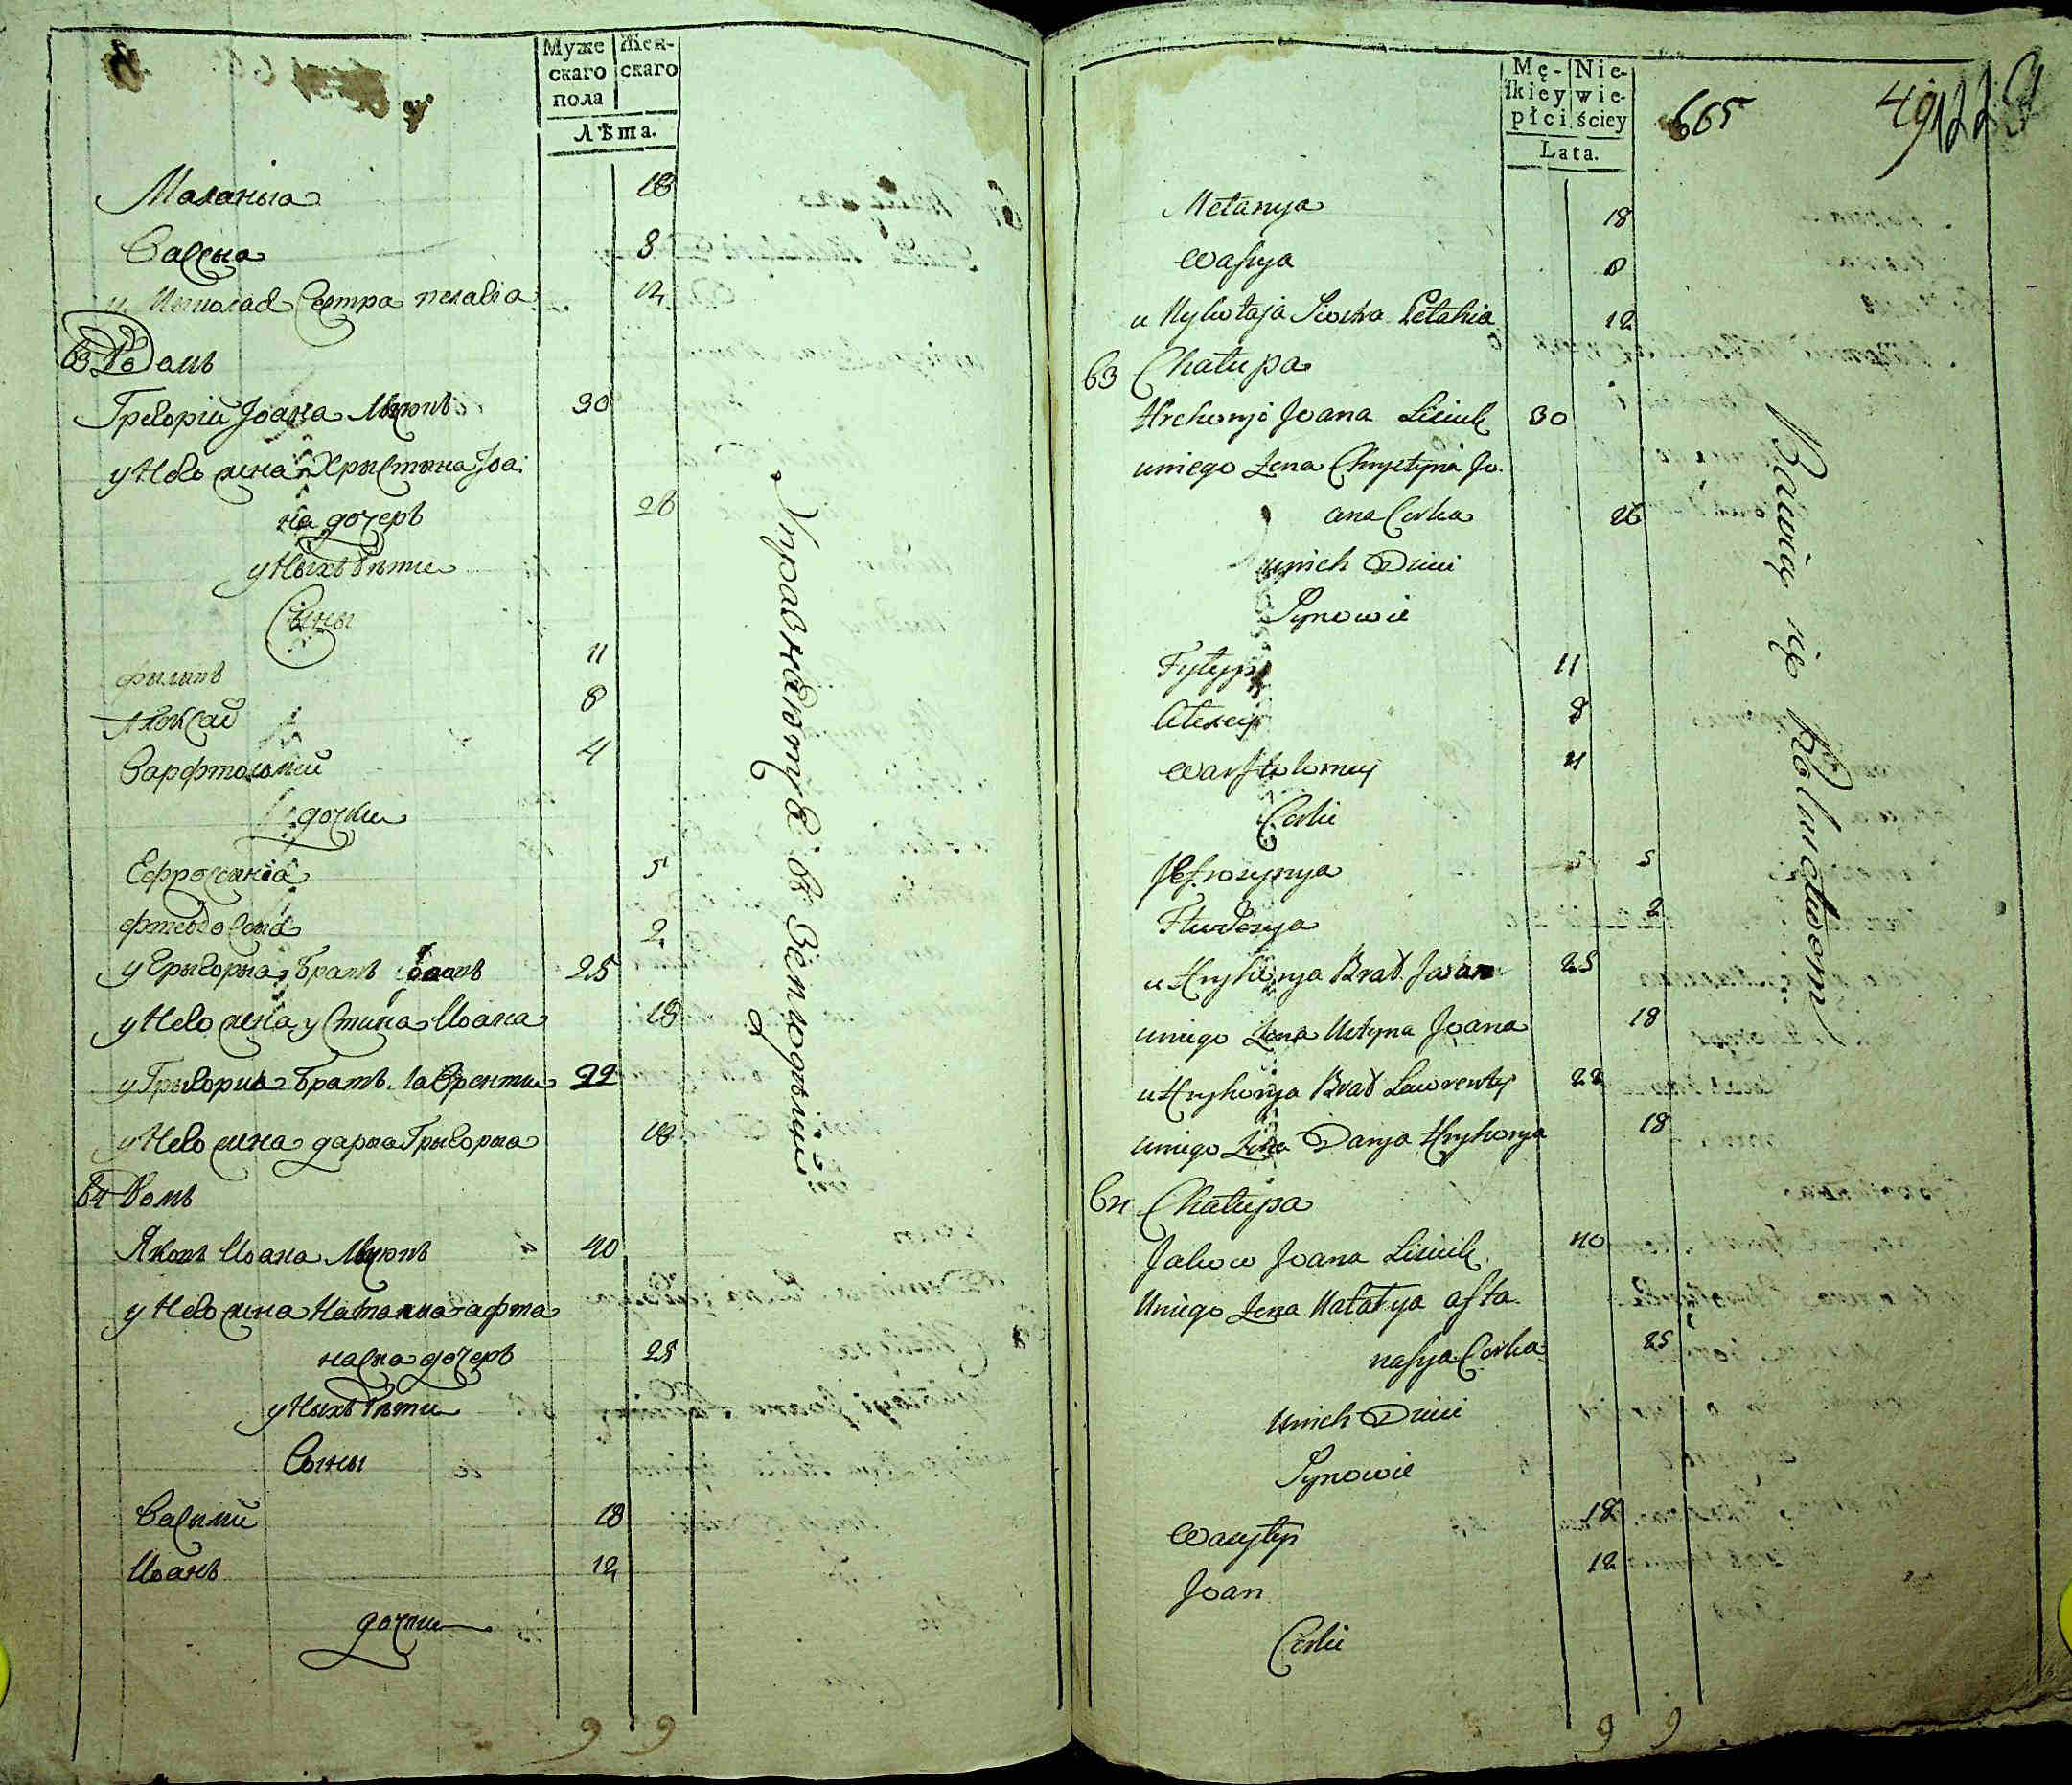 Муже
скаго
пола
Жен-
скаго
Лѣта.
Маланыа 18
Васеыа 8
у Миколаѣ Сестра пелагіа 12
63 Домъ
Грегорій Іоана Лисюкъ 30
у Него жена Хрыстына Іоа:
на дочеръ 26
у Ныхъ Дѣти
Сыны
филипъ 11
Алексай 8
Варфтоломей 4
дочки
Ефросинія 5
фтеодосыя 2
у Грыгорыа братъ Іоанъ 25
у Него жена устина Иоана 18
у Грыгорыа братъ Лаврентии 22
у Него жена дарыа Грыгорыа 18
64 Домъ
Яковъ Иоана Лисюкъ 40
у Него жена Наталиа афта
насыа дочеръ 25
у Ныхъ Дѣти
Сыны
Васылий 18
Иоанъ 12
дочки
9 9
Упражнаютца въ Земледѣліи
Mę-
skiey
płci
Nie-
wie-
ściey
Lata.
665
Melanya 18
Wasya 8
u Mykołaja Siostra Pelahia 12
63 Chałupa
Hrehoryi Joana Lisiuk 30
uniego Żena Chrystyna Jo.
ana Corka 26
unich Dzieci
Synowie
Fyłypp 11
Alexiey 8
Warftolomiy 4
Corki
Jefrozynya 5
Ftwdosya 2
u Hryhorya Brat Joan 25
uniego Żena Ustyna Joana 18
u Hryhorya Brat Lawrenty 22
uniego Żena Darya Hryhorya 18
64 Chałupa
Jakow Joana Lisiuk 40
Uniego Żena Natalya asta
nasya Corka 25
Unich Dzieci
Synowie
Wasyly 18
Joan 12
Corki
9 9
Bawią się Rolnictwom